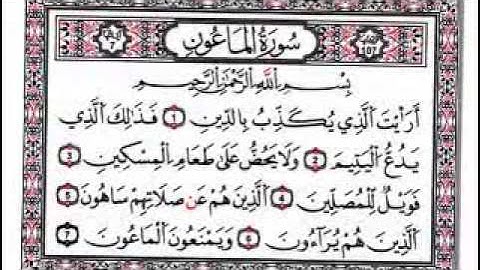 سُورَةُ المَاعُونِ
بِسْمِ ٱللَّهِ ٱلرَّحْمَٰنِ ٱلرَّحِيمِ
أَرَأَيْتَ ٱلَّذِي يُكَذِّبُ بِالدِّينِ ١ فَذَٰلِكَ ٱلَّذِي
يَدُعُّ ٱلْيَتِيمَ ٢ وَلَا يَحُضُّ عَلَىٰ طَعَامِ ٱلْمِسْكِينِ ٣
فَوَيْلٌ لِّلْمُصَلِّينَ ٤ ٱلَّذِينَ هُمْ عَن صَلَاتِهِمْ سَاهُونَ ٥
ٱلَّذِينَ هُمْ يُرَآءُونَ ٦ وَيَمْنَعُونَ ٱلْمَاعُونَ ٧